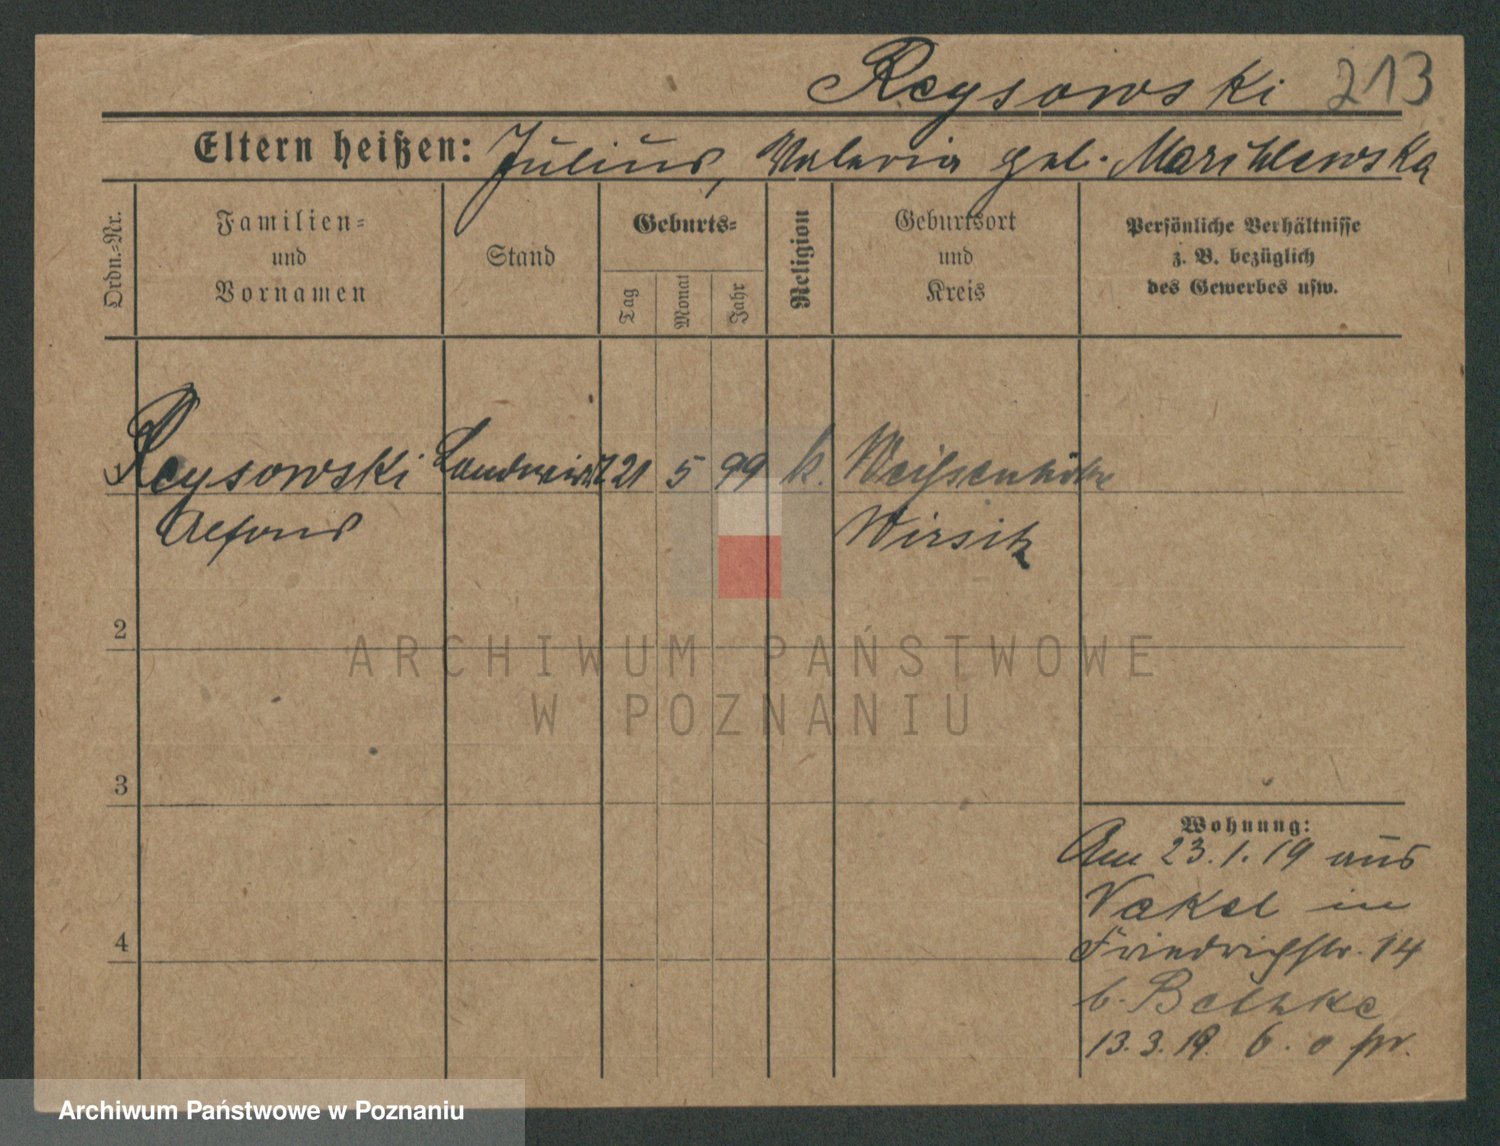 Reysowski 213
Eltern heißen: Julius, Valeria geb. Marchlewska
Ordn.-Nr.
Familien-
und
Vornamen
Stand
Geburts-
Tag
Monat
Jahr
Religion
Geburtsort
und
Kreis
Persönliche Verhältnisse
z. B. bezüglich
des Gewerbes usw.
Reysowski Landwirt 21 5 99 k. Weissenhöhe
Alfons Wirsitz
2
3
4
Wohnung:
Am 23.1.19 aus
Nakel in
Friedrichstr. 14
b. Bethke
13.3.19. 6.
ARCHIWUM PAŃSTWOWE
W POZNANIU
Archiwum Państwowe w Poznaniu